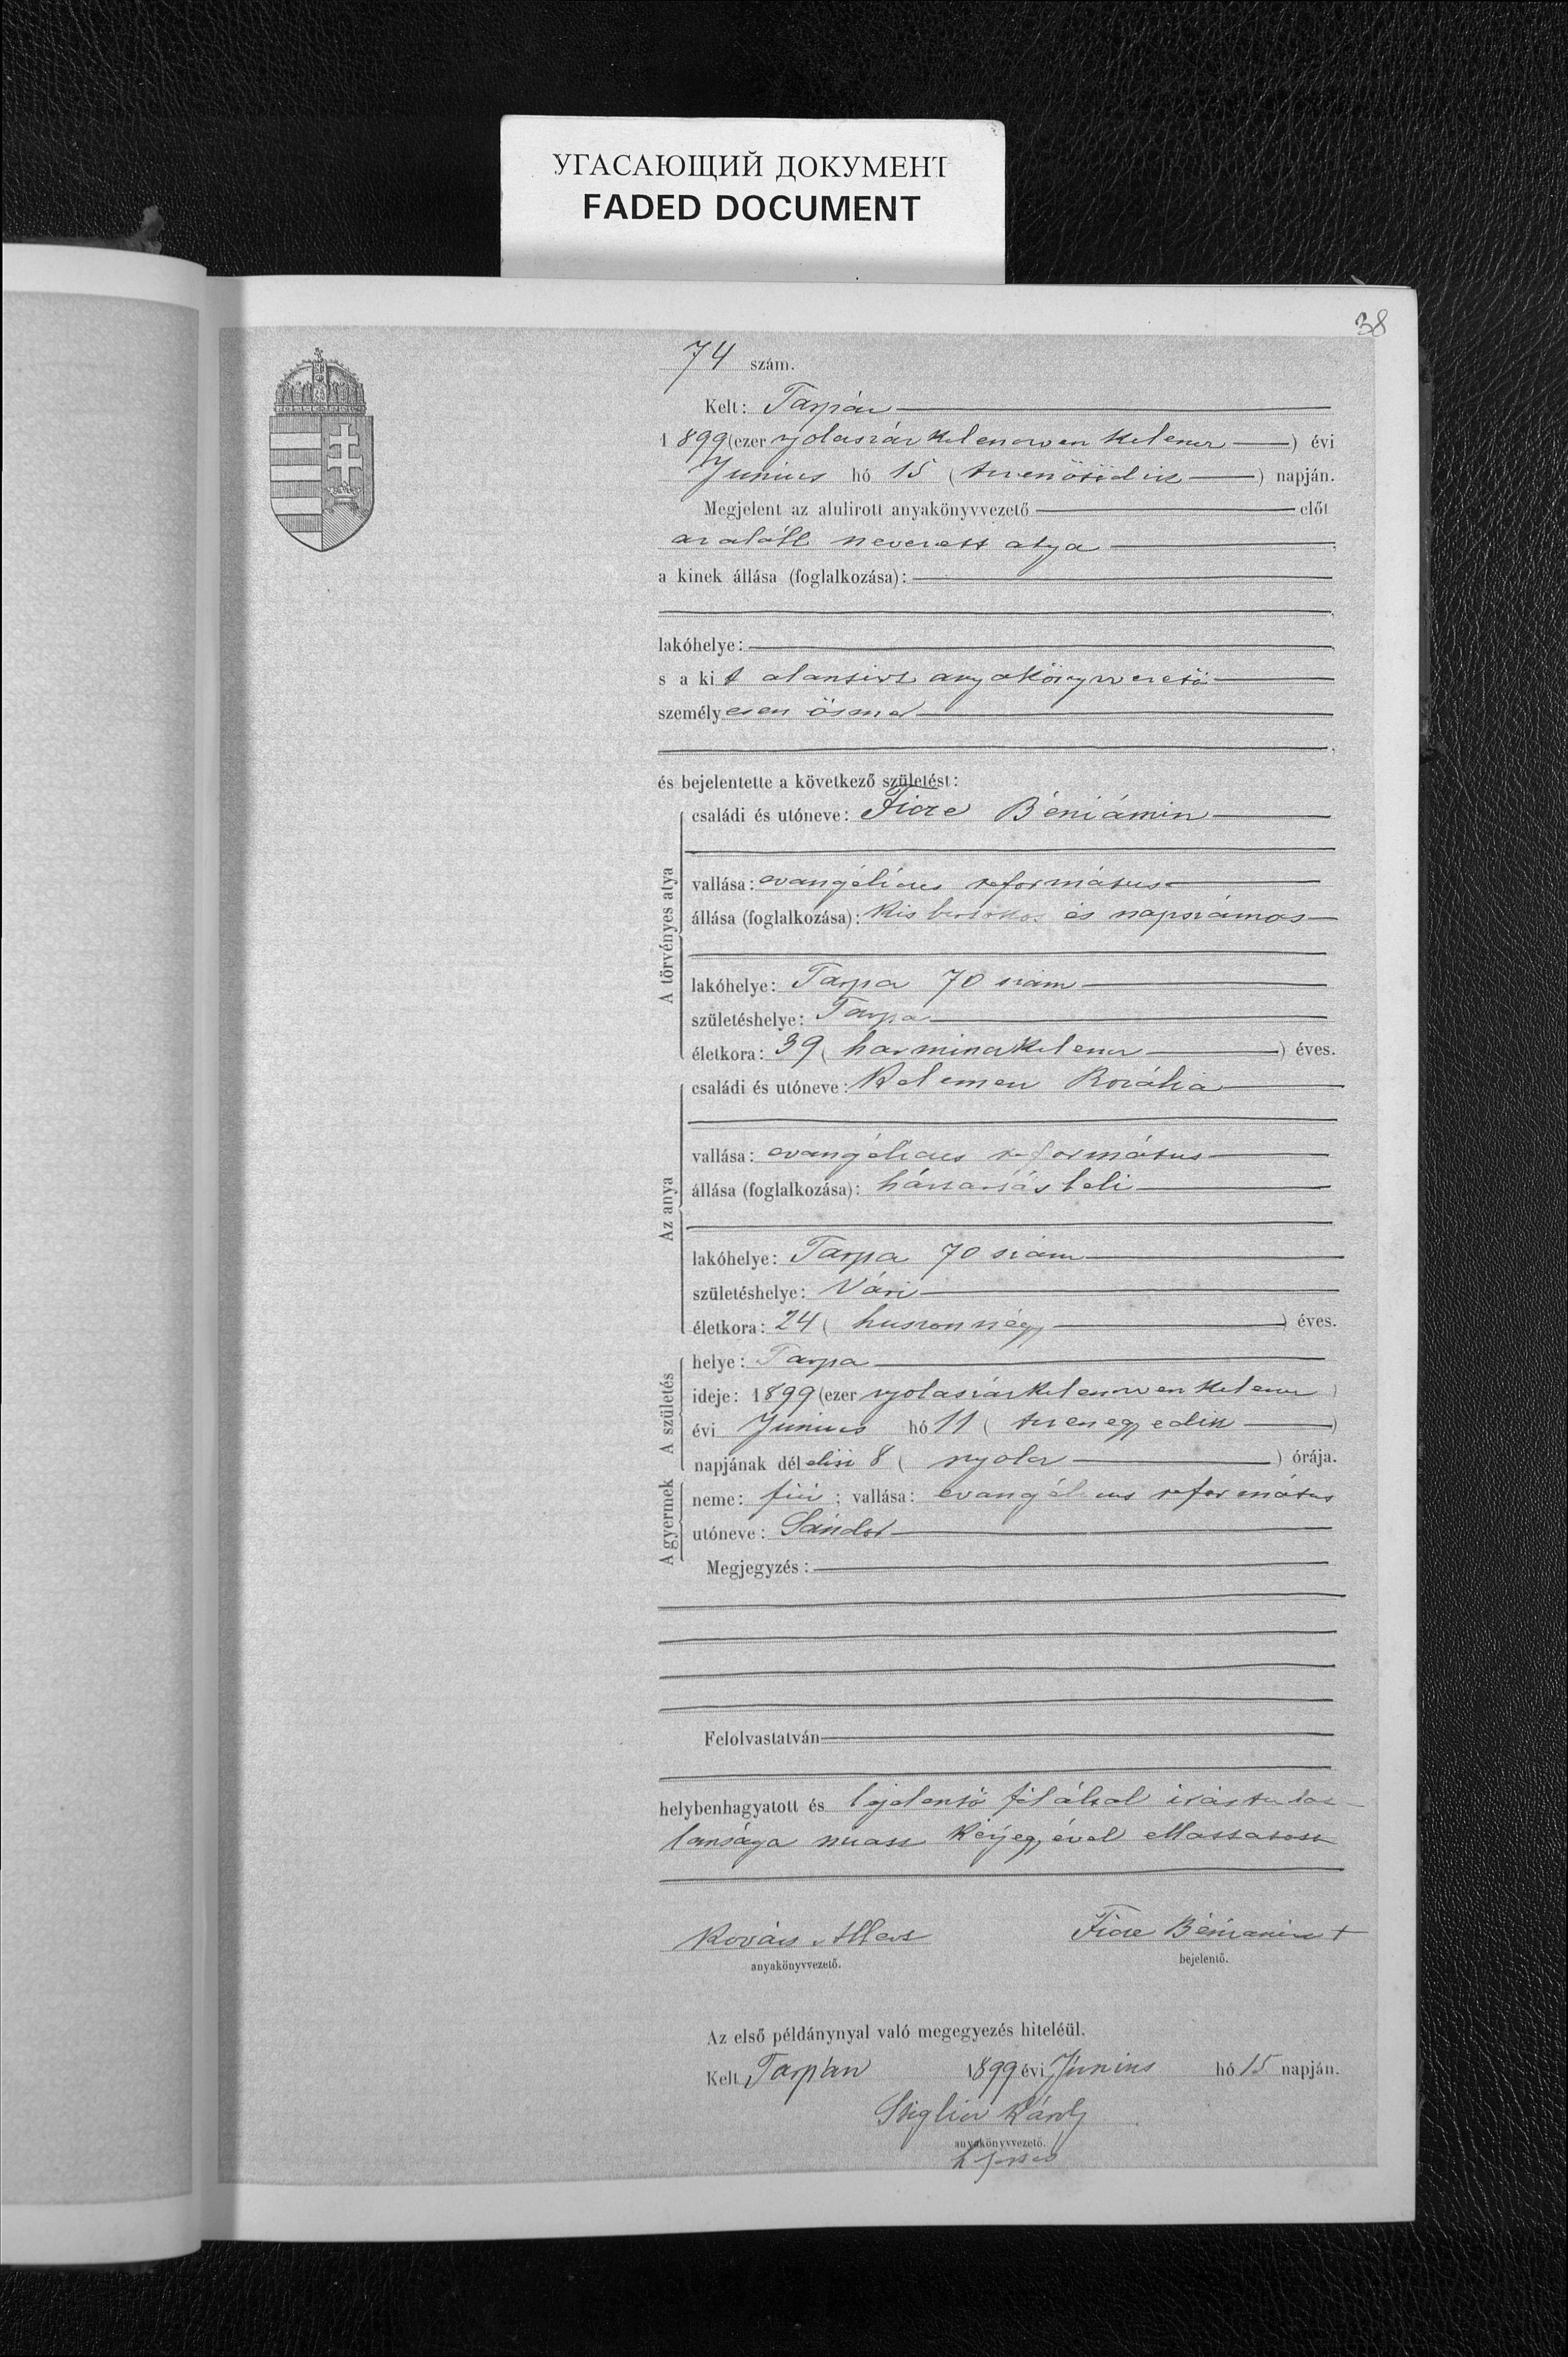 УГАСАЮЩИЙ ДОКУМЕНТ
FADED DOCUMENT
38
74 szám.
Kelt: Tarpán
1899 (ezer nyolczszázkilenczvenkilencz) évi
Junius hó 15 (tizenötödik) napján.
Megjelent az alulirott anyakönyvvezető előt
az alább nevezett atya
a kinek állása (foglalkozása):
lakóhelye:
s a kit alantirt anyakönyvvezető
személyesen ösmer
és bejelentette a következő születést:
A törvényes atya
családi és utóneve: Ficze Béniámin
vallása: evangélicus református
állása (foglalkozása): kisbirtokos és napszámos
lakóhelye: Tarpa 70 szám
születéshelye: Tarpa
életkora: 39 (harminczkilencz) éves.
Az anya
családi és utóneve: Kelemen Rozália
vallása: evangélicus református
állása (foglalkozása): háztartásbeli
lakóhelye: Tarpa 70 szám
születéshelye: Vári
életkora: 24 (huszonnégy) éves.
A születés
helye: Tarpa
ideje: 1899 (ezer nyolczszázkilenczvenkilencz)
évi Junius hó 11 (tizenegyedik)
napjának dél előtti 8 (nyolcz) órája.
A gyermek
neme: fiú; vallása: evangélicus református
utóneve: Sándor
Megjegyzés:
Felolvastatván
helybenhagyatott és bejelentő fél által irástudat
lansága miatt kézjegyével elláttatott
Kovács Albert Ficze Béniamin +
anyakönyvvezető. bejelentő.
Az első példánynyal való megegyezés hiteléül.
Kelt Tarpán 1899 évi Junius hó 15 napján.
Károly
anyakönyvvezető.